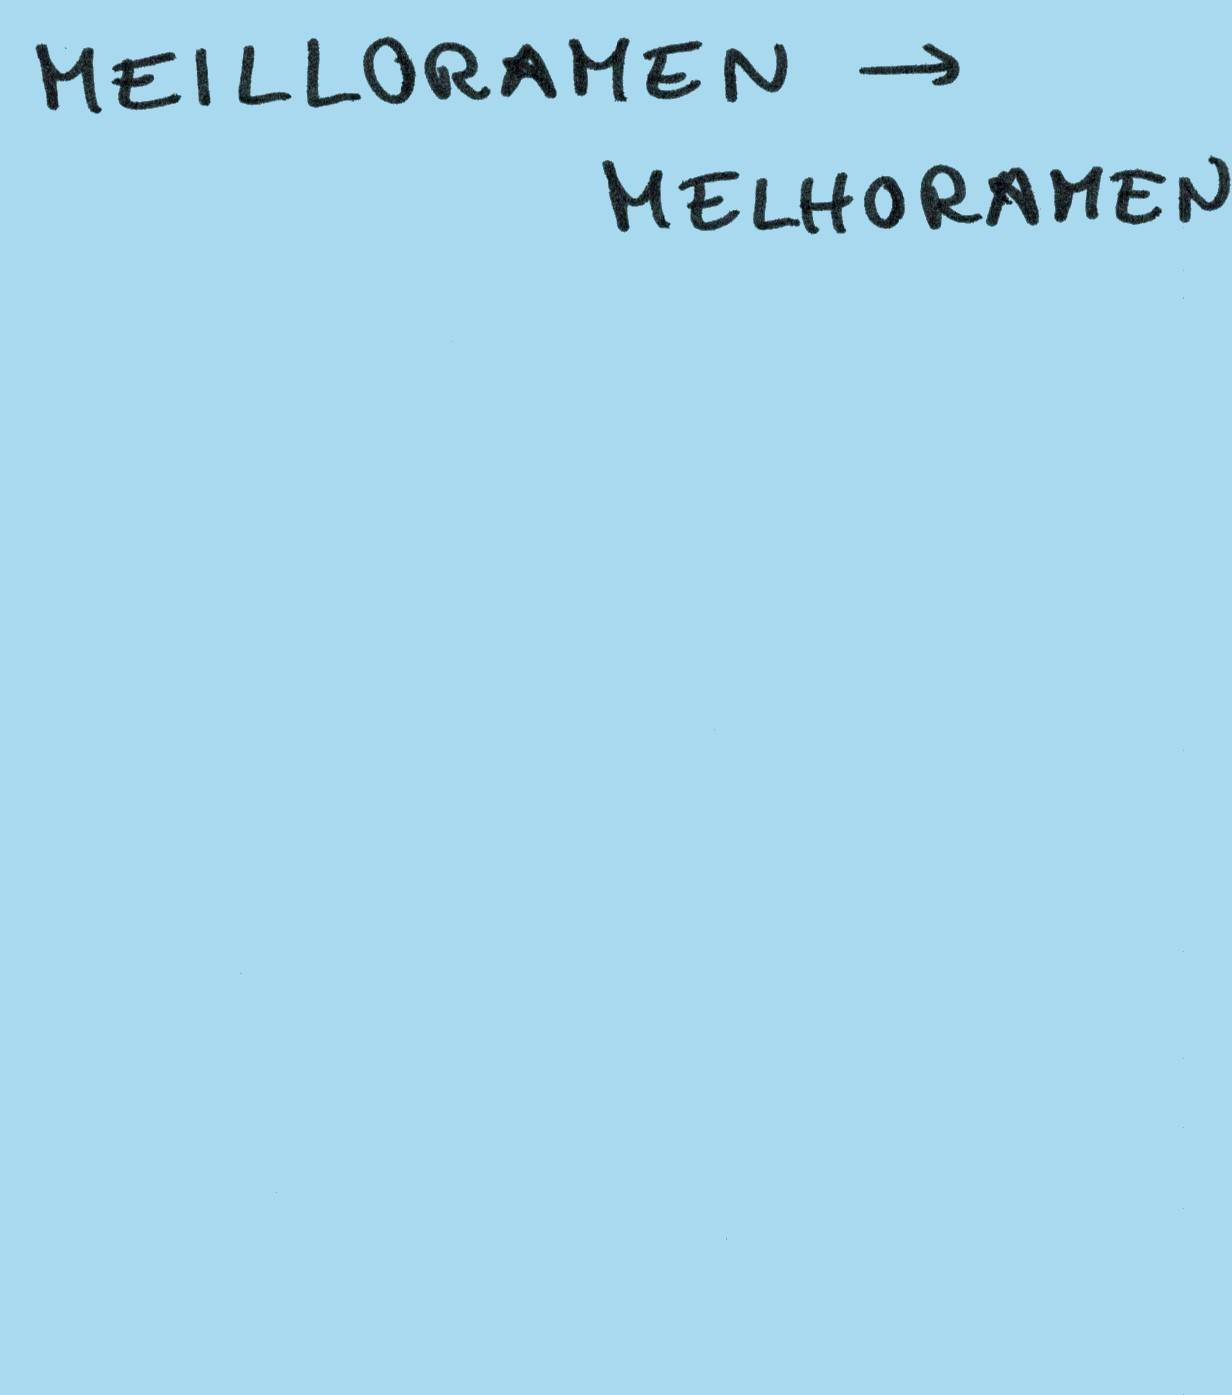 MEILLORAMEN →
MELHORAMEN